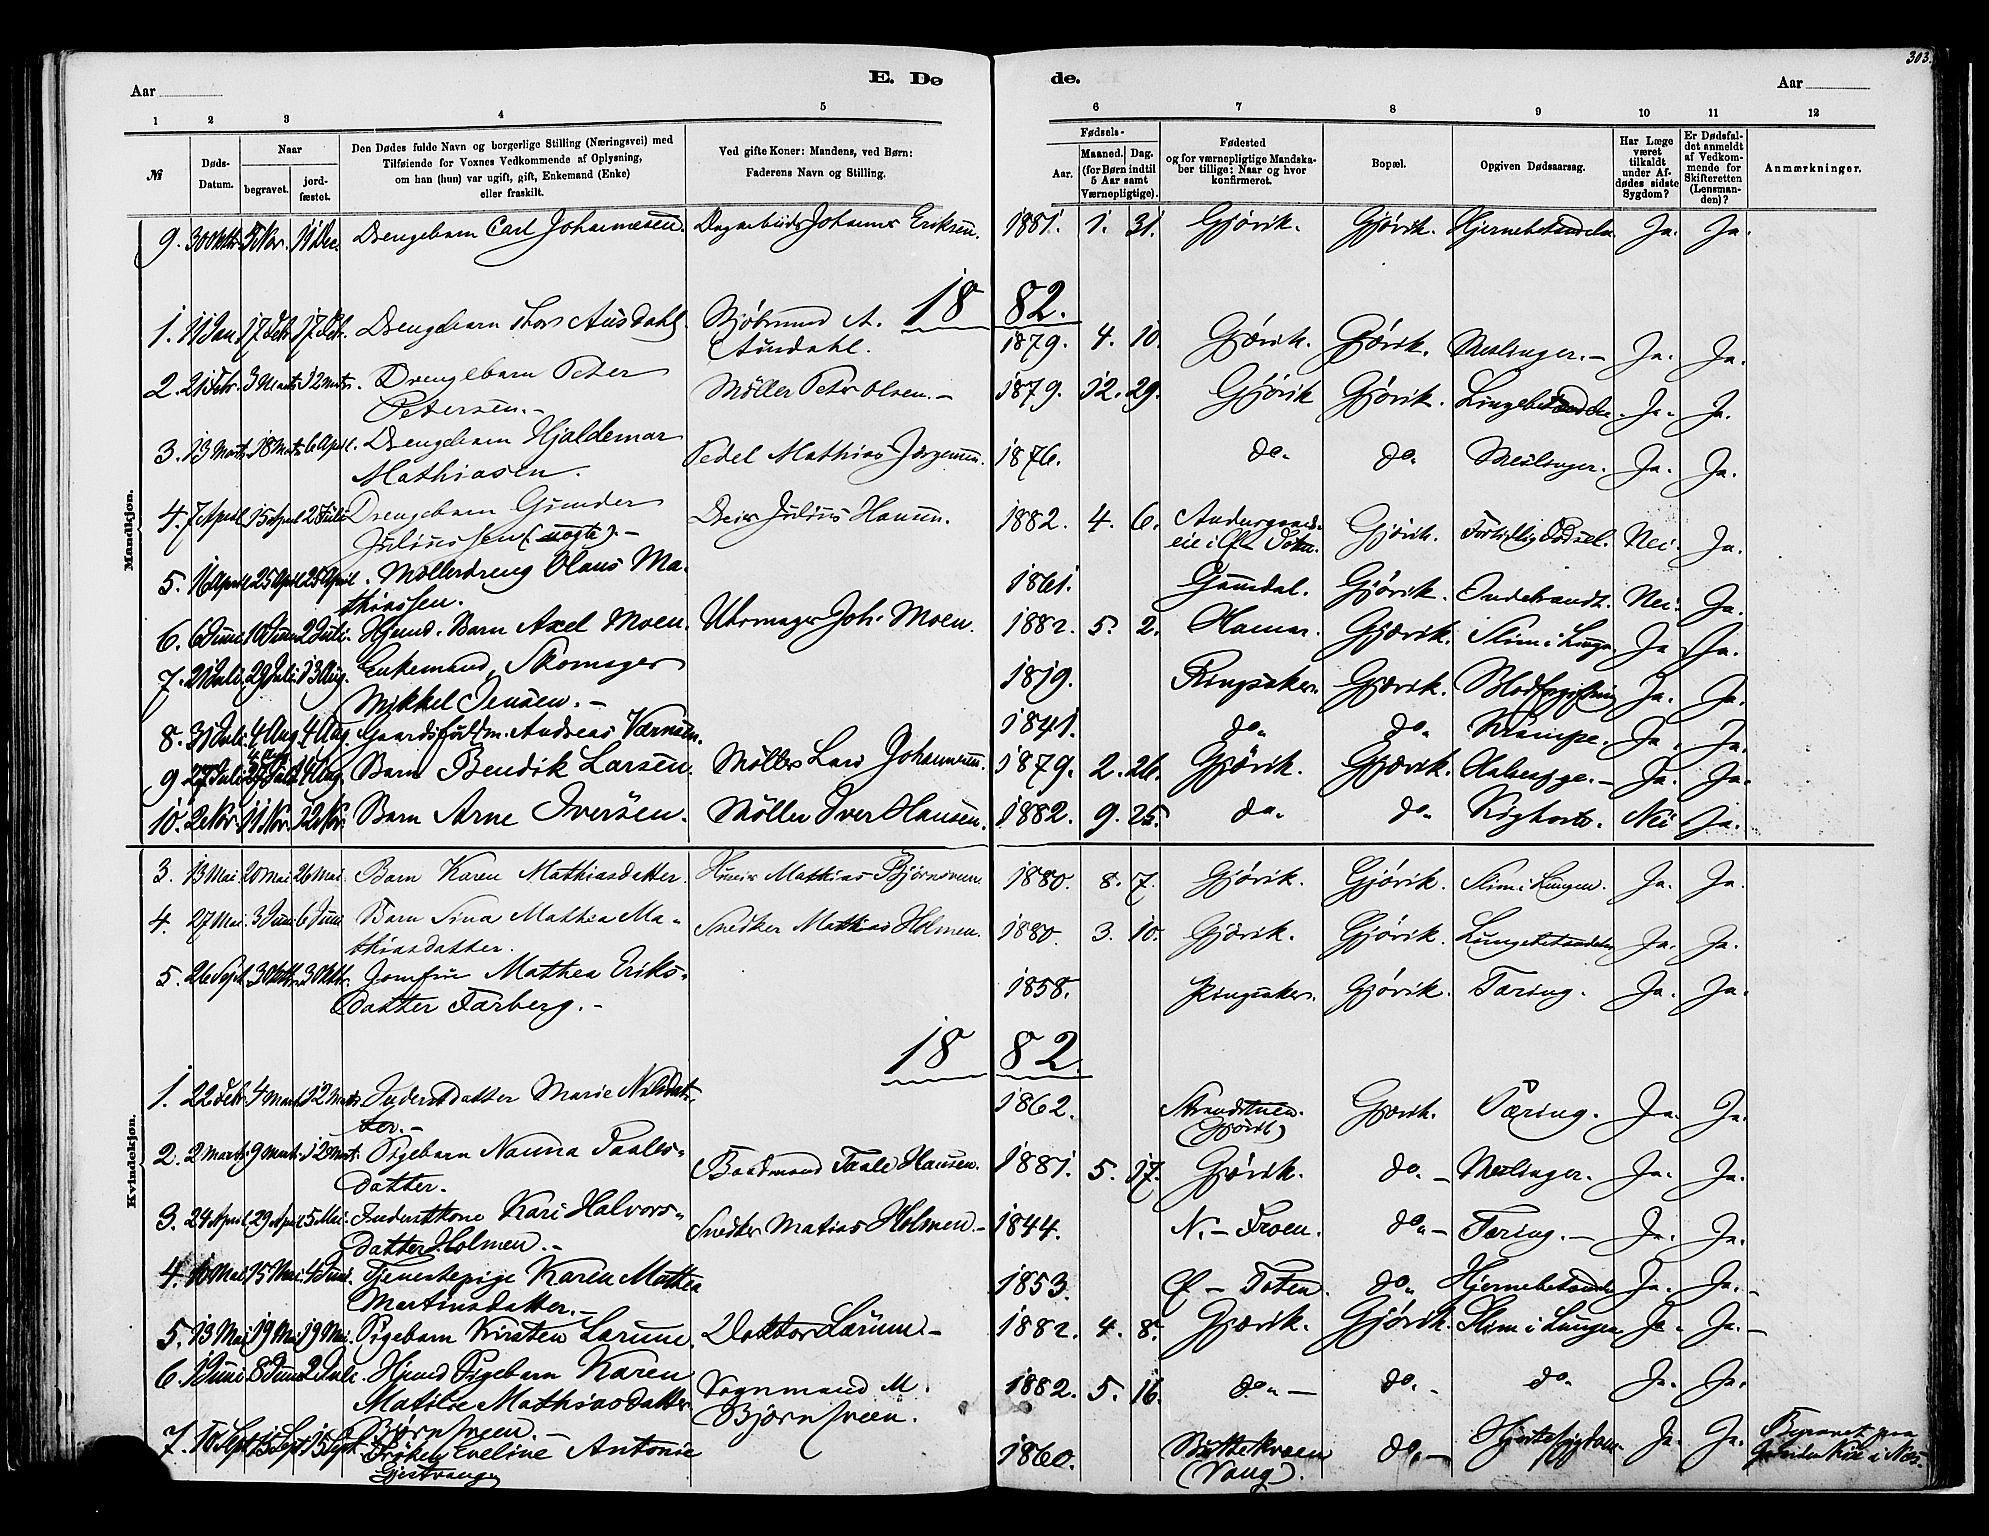 303.
E. Dø de.
Aar Aar
1 2 3 4 5 6 7 8 9 10 11 12
№
Døds-
Datum.
Naar
begravet.
jord-
fæstet.
Den Dødes fulde Navn og borgerlige Stilling (Næringsvei) med
Tilføiende for Voxnes Vedkommende af Oplysning,
om han (hun) var ugift, gift, Enkemand (Enke)
eller fraskilt.
Ved gifte Koner: Mandens, ved Børn:
Faderens Navn og Stilling.
Fødsels-
Aar.
Maaned. Dag.
(for Børn indtil
5 Aar samt
Værnepligtige).
Fødested
og for værnepligtige Mandska-
ber tillige: Naar og hvor
konfirmeret.
Bopæl.
Opgiven Dødsaarsag.
Har Læge
været
tilkaldt
under Af-
dødes sidste
Sygdom?
Er Dødsfal-
det anmeldt
af Vedkom-
mende for
Skifteretten
(Lensman-
den)?
Anmærkninger.
Mandkjøn.
9. 30 Oktbr. 5 Nov. 11 Dec. Drengebarn Carl Johannesen. Johannes Eriksen. 1881. 1. 31. Gjøvik. Gjøvik. Hjernebetændelse Ja. Ja.
18 82.
1. 11 Jan 17 Febr. 17 Febr. Drengebarn Thor Ausdahl A.
Ausdahl. 1879. 4. 10. Gjøvik. Gjøvik. Meslinger. – Ja. Ja.
2. 21 Febr. 3 Marts 12 Marts. Drengebarn Peder
Petersen. – Møller Peter Olsen. – 1879. 12. 29. Gjøvik Gjøvik. Lungebetændelse. Ja. Ja.
3. 13 Marts 18 Marts 6 April. Drengebarn Hjaldemar
Mathiasen. Pedel Mathias Jørgensen. 1876. do. do. Meslinger. Ja. Ja.
4. 7 April 15 April 2 Juli Drengebarn Gunder
Juliussen (uægte). – Julius Hansen. 1882. 4. 6. Gjøvik. Fortidlig Fødsel. Nei. Ja.
5. 25 April 25 April. Møllerdreng Olaus Ma-
thiassen. 1861. Gausdal. Gjøvik. Nei. Ja.
6. 6 Juni 10 Juni 2 Juli. Hjemd. Barn Axel Moen. Uhrmager Joh. Moen. 1882. 5. 2. Hamar. Gjøvik. Slim i Lunge. Ja Ja.
7. 21 Juli. 29 Juli. 13 Aug. Enkemand, Skomager
Mikkel Jensen. – 1819. Ringsaker. Gjøvik. Blodforgiftning Ja. Ja.
8. 31 Juli. 4 Aug 4 Aug. Andreas 1841. do. do. Krampe. Ja. Ja.
9 27 Juli 4 Aug. Barn Bendik Larsen. Møller Lars Johannesen. 1879. 2. 26. Gjøvik. Gjøvik. Ja. Ja.
10. 2 Nov. 11 Nov. 12 Nov. Barn Arne Iversen. Møller Iver Hansen. 1882. 9. 25. do. do. Kighoste. Nei Ja.
Kvindekjøn.
3. 13 Mai 20 Mai 26 Mai. Barn Karen Mathiasdatter. Mathias Bjørnsveen 1880. 8. 7. Gjøvik. Gjøvik. Slim i Lungen. Ja. Ja.
4. 27 Mai. 3 Juni 6 Juni Barn Sina Mathea Ma-
thiasdatter. Snedker Mathias Holmen. 1880. 3. 10. Gjøvik. Gjøvik. Lungebetændelse Ja. Ja.
5. 26 Sept. 3 Oktbr. 3 Oktbr. Jomfru Mathea Eriks-
datter Farberg. – 1858. Ringsaker. Gjøvik. Tæring. Ja. Ja.
18 82.
1. 22 Febr. 4 Marts 12 Marts. Inderstdatter Marie Nilsdat-
ter. – 1862. Strandstuen.
(Gjøvik) Gjøvik. Tæring. Ja. Ja.
2. 2 Marts 9 Marts. 12 Marts. Pigebarn Nanna Paals-
datter. Baadmand Paale Hansen. 1881. 5. 17. Gjøvik. do. – Meslinger. Ja. Ja.
3. 24 April 29 April 5 Mai. Inderstkone Kari Halvors-
datter Holmen. – Snedker Matias Holmen. – 1844. N. – Froen. do. – Tæring. – Ja. Ja.
4. 10 Mai 15 Mai. 4 Juni. Tjenestepige Karen Mathea
Martinsdatter. – 1853. Ø – Toten. do. Hjernebetændelse Ja. Ja. –
5. 13 Mai 19 Mai 19 Mai. Pigebarn Kirsten Larum. Doktor Larum – 1882. 4. 8. Gjøvik. Gjøvik. Slim i Lungen Ja. Ja. –
6. 1 Juni 8 Juni 2 Juli. Hjemd Pigebarn Karen
Matilde Mathiasdatter
Bjørnsveen. – Vognmand M.
Bjørnsveen. 1882. 5. 16. do. – do. – do. Ja. Ja.
7. 10 Sept 15 Sept 15 Sept. Frøken Eveline Antonie
Gjestvang 1860. Byttekveen
(Vang). do. – Ja. Ja. Begravet paa
i Næs.